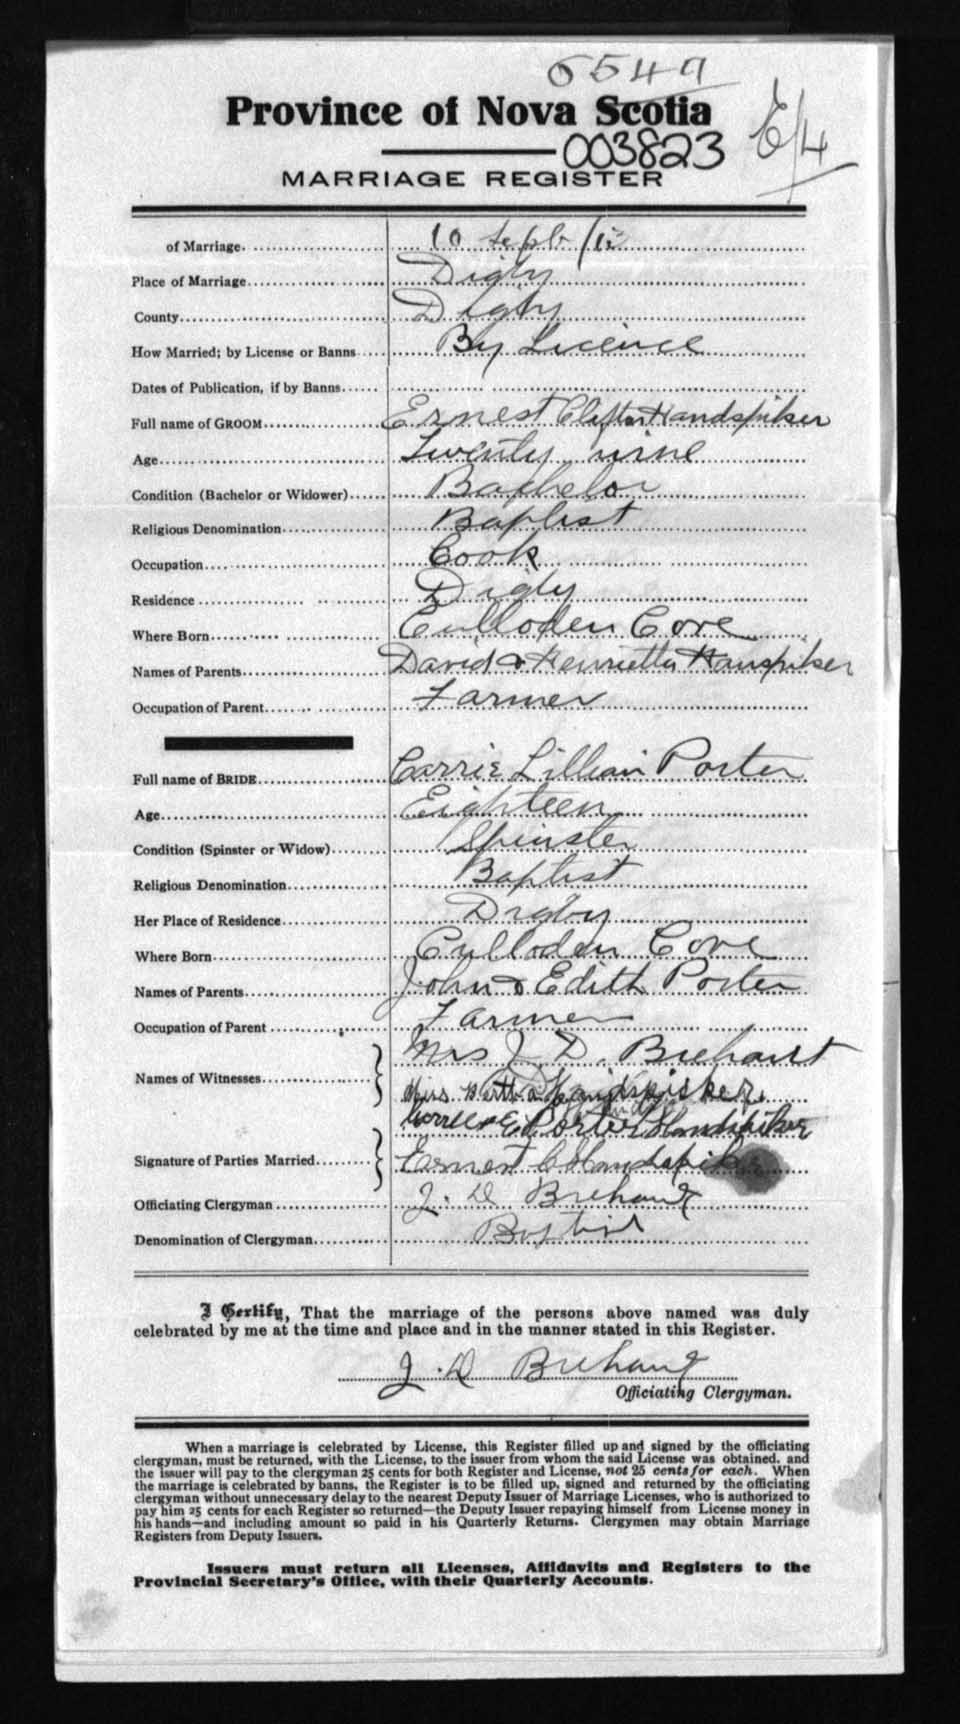 6547
Province of Nova Scotia
E/4
003823
MARRIAGE REGISTER
of Marriage. 10 Sepb /13
Place of Marriage Digby
County Digby
How Married; by License or Banns By Licence
Dates of Publication, if by Banns
Full name of GROOM Ernest Clifton Handspiker
Age Twenty nine
Condition (Bachelor or Widower) Bachelor
Religious Denomination Baptist
Occupation Cook
Residence Digby
Where Born Culloden Cove
Names of Parents David & Henrietta Hanspiker
Occupation of Parent Farmer
Full name of BRIDE Carrie Lillian Porter
Age Eighteen
Condition (Spinster or Widow) Spinster
Religious Denomination Baptist
Her Place of Residence Digby
Where Born Culloden Cove
Names of Parents John & Edith Porter
Occupation of Parent Farmer
Mrs J D. Brehaut
Names of Witnesses Miss Handspiker
Porter Handspiker
Signature of Parties Married Ernest C Handspiker
Officiating Clergyman J. D Brehaut
Denomination of Clergyman Baptist
I Certify, That the marriage of the persons above named was duly
celebrated by me at the time and place and in the manner stated in this Register.
J. D Brehaut
Officiating Clergyman.
When a marriage is celebrated by License, this Register filled up and signed by the officiating
clergyman, must be returned, with the License, to the issuer from whom the said License was obtained, and
the issuer will pay to the clergyman 25 cents for both Register and License, not 25 cents for each. When
the marriage is celebrated by banns, the Register is to be filled up, signed and returned by the officiating
clergyman without unnecessary delay to the nearest Deputy Issuer of Marriage Licenses, who is authorized to
pay him 25 cents for each Register so returned—the Deputy Issuer repaying himself from License money in
his hands—and including amount so paid in his Quarterly Returns. Clergymen may obtain Marriage
Registers from Deputy Issuers.
Issuers must return all Licenses, Affidavits and Registers to the
Provincial Secretary's Office, with their Quarterly Accounts.